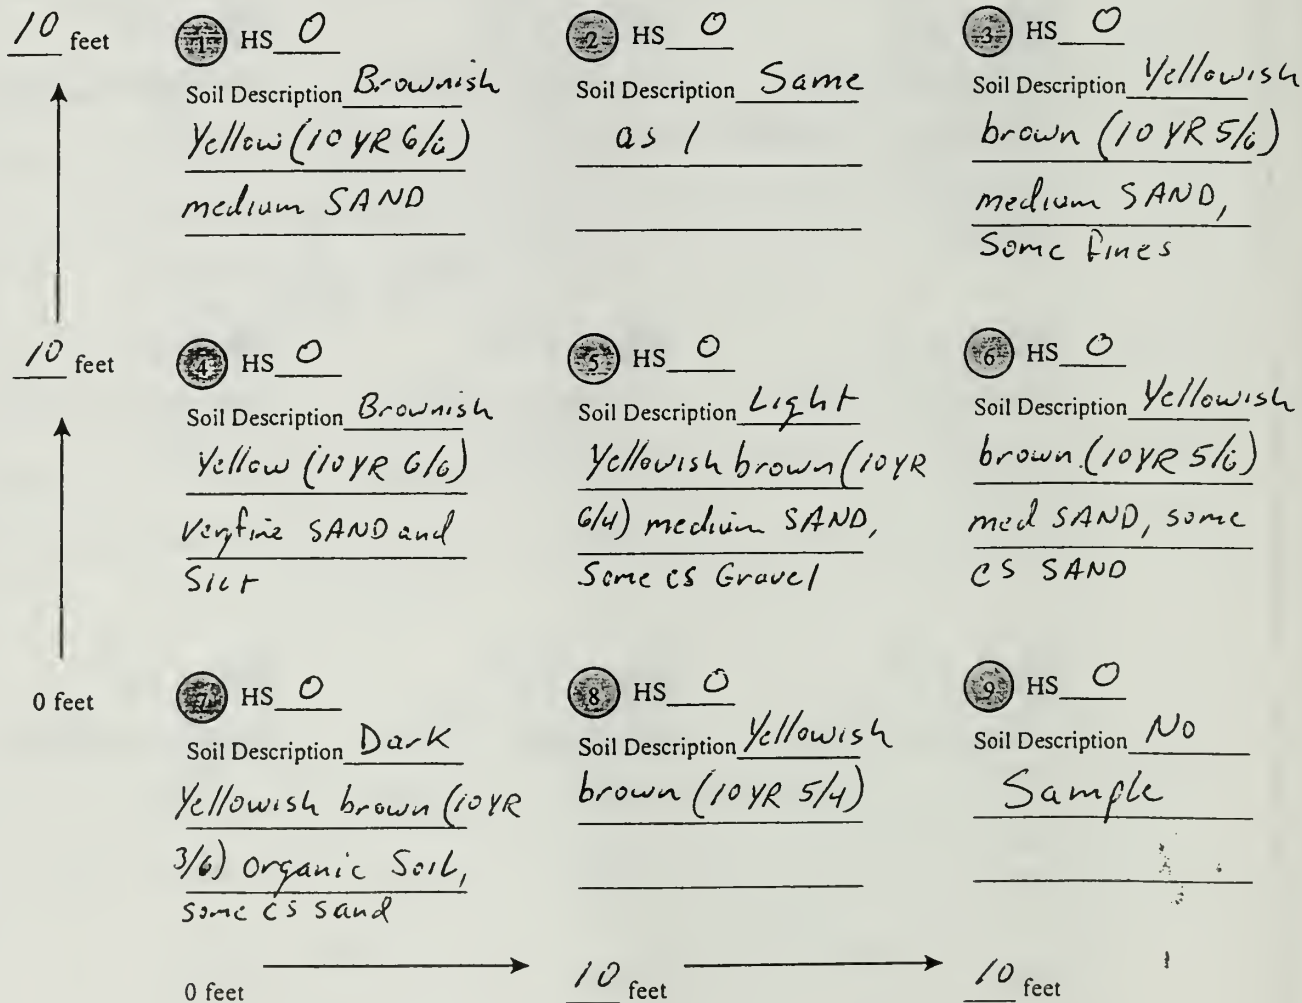 10 feet
1 HS 0
Soil Description Brownish
Yellow (10 YR 6/6)
medium SAND
2 HS 0
Soil Description Same
as 1
3 HS 0
Soil Description Yellowish
brown (10 YR 5/6)
medium SAND,
Some fines
10 feet
4 HS 0
Soil Description Brownish
Yellow (10 YR 6/6)
Very fine SAND and
Silt
5 HS 0
Soil Description Light
Yellowish brown (10 YR
6/4) medium SAND,
Some cs Gravel
6 HS 0
Soil Description Yellowish
brown. (10 YR 5/6)
med SAND, some
CS SAND
0 feet
7 HS 0
Soil Description Dark
Yellowish brown (10 YR
3/6) Organic Soil,
some cs sand
8 HS 0
Soil Description Yellowish
brown (10 YR 5/4)
9 HS 0
Soil Description No
Sample
0 feet
10 feet
10 feet